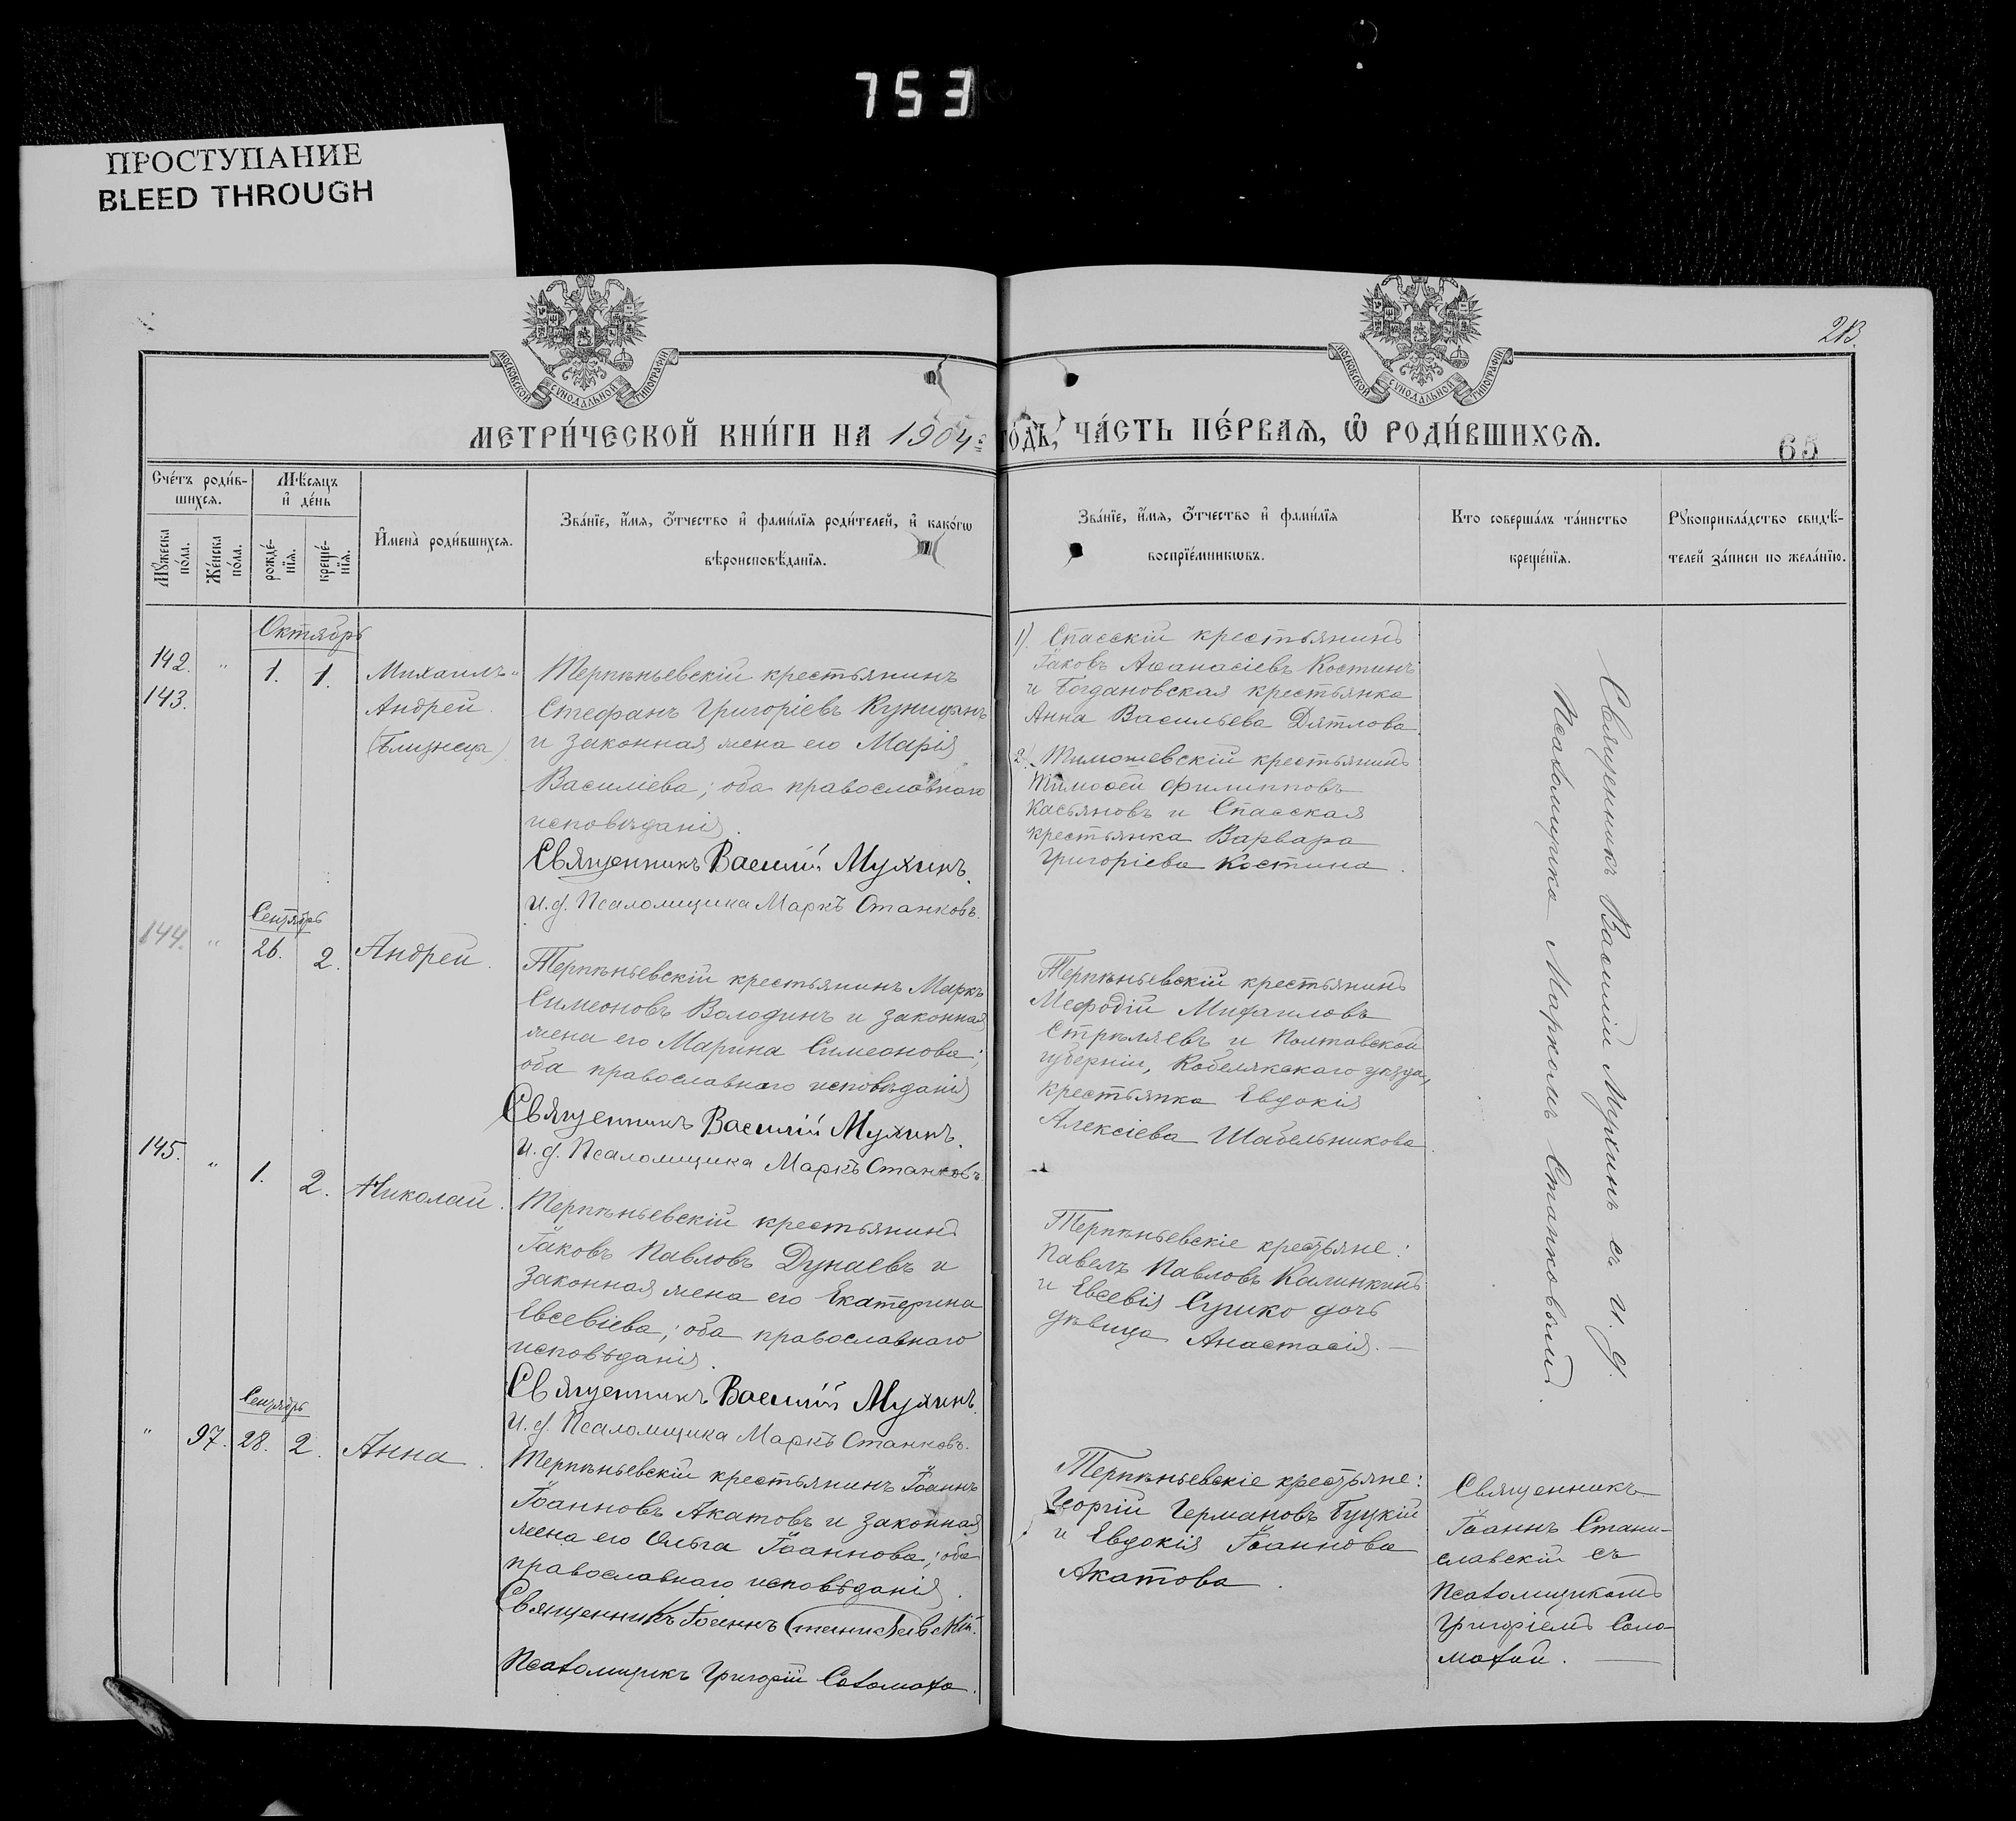 753
ПРОСТУПАНИЕ
BLEED THROUGH
МОСКОВСКОЙ СѴНОДАЛЬНОЙ ТИПОГРАФІИ
МОСКОВСКОЙ СѴНОДАЛЬНОЙ ТИПОГРАФІИ
213.
МЕТРИ́ЧЕСКОЙ КНИ́ГИ НА 1904 г҃ ГО́ДЪ, ЧА́СТЬ ПЕ́РВАЯ, Ѡ РОДИ́ВШИХСЯ.
65
Сче́тъ роди́в-
шихся.
Мѣ́сяцъ
и҆ де́нь
Мꙋ́жеска
по́ла.
Же́нска
по́ла.
рожде́-
нїѧ.
креще́-
нїѧ.
И҆мена̀ роди́вшихся.
Зва́нїе, и҆́мя, о҆́тчество и҆ фами́лїя роди́телей, и҆ како́гѡ
вѣроисповѣ́данїя.
Зва́нїе, и҆́мя, о҆́тчество и҆ фами́лїя
воспрїе́мникѡвъ.
Кто соверша́лъ та́инство
креще́нїя.
Рꙋкоприкла́дство свидѣ́-
телей за́писи по жела́нїю.
Октябрь
142. " 1. 1. Михаилъ "
143. Андрей.
(близнеца)
Терпѣньевскій крестьянинъ
Стефанъ Григоріевъ Куницанъ
и законная жена его Марія
Василіева; оба православнаго
исповѣданія.
Священникъ Василій Мухинъ.
И. д. Псаломщика Маркъ Станковъ.
1). Спасскій крестьянинъ
Іаковъ Аѳанасіевъ Костинъ
и Богдановская крестьянка
Анна Васильева Дятлова.
2). Тимошевскій крестьянинъ
Тимоѳей Филипповъ
Касьяновъ и Спасская
крестьянка Варвара
Григоріева Костина.
Священникъ Василій Мухинъ съ и. д.
Псаломщика Маркомъ Станковымъ.
Сентябрь
144. " 26. 2. Андрей.
Терпѣньевскій крестьянинъ Маркъ
Симеоновъ Володинъ и законная
жена его Марина Симеонова;
оба православнаго исповѣданія
Священникъ Василій Мухинъ.
И. д. Псаломщика Маркъ Станковъ.
Терпѣньевскій крестьянинъ
Меѳодій Михаиловъ
Стрѣляевъ и Полтавской
губерніи, Кобелякскаго уѣзда,
крестьянка Евдокія
Алексіева Шабельникова.
145. " 1. 2. Николай.
Терпѣньевскій крестьянинъ
Іаковъ Павловъ Дунаевъ и
законная жена его Екатерина
Евсевіева; оба православнаго
исповѣданія.
Священникъ Василій Мухинъ.
И. д. Псаломщика Маркъ Станковъ.
Терпѣньевскіе крестьяне:
Павелъ Павловъ Калинкинъ
и Евсевія Сушко дочь
дѣвица Анастасія. —
Сентябрь
" 97. 28. 2. Анна.
Терпѣньевскій крестьянинъ Іоаннъ
Іоанновъ Акатовъ и законная
жена его Ольга Іоаннова; оба
православнаго исповѣданія.
Священникъ Іоаннъ Станиславскій.
Псаломщикъ Григорій Соломаха.
Терпѣньевскіе крестьяне:
Георгій Германовъ Буцкій
и Евдокія Іоаннова
Акатова.
Священникъ
Іоаннъ Стани-
славскій съ
Псаломщикомъ
Григоріемъ Соло-
махой. —